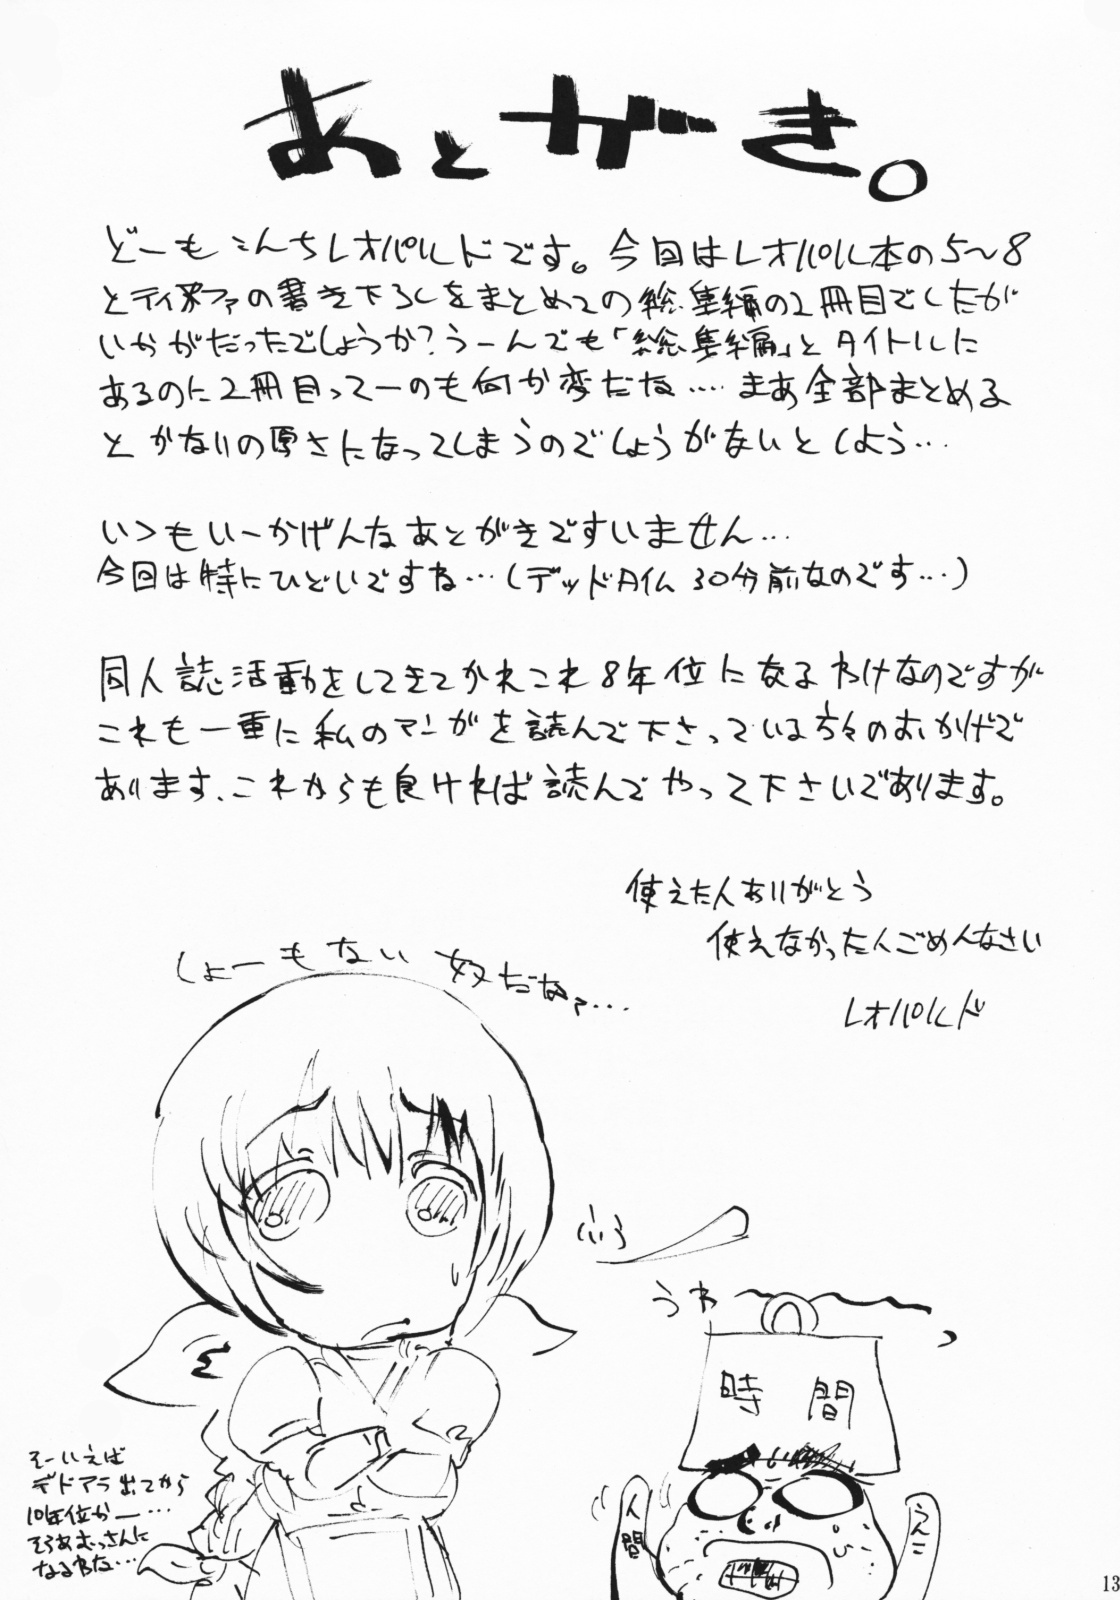 あとがき。
どーもこんちレオパルドです。今回はレオパル本の5～8
とティファの書き下ろしをまとめての総集編の2冊目でしたが
いかがだったでしょうか?うーんでも「総集編」とタイトルに
あるのに2冊目ってーのも何か変だな……まあ全部まとめる
とかないの厚さになってしまうのでしょうがないとしよう…
いつもいーかげんなあとがきですいません…
今回は特にひどいですね…(デッドタイム30分前なのです…)
同人誌活動をしてきてかれこれ8年位になるわけなのですが
これも一重に私のマンガを読んで下さっている方々のおかげで
あります、これからも良ければ読んでやって下さいであります。
使えた人ありがとう
使えなかった人ごめんなさい
レオパルド
しょーもない奴だなァ…
ふぅ
うわ
時間
人間
そーいえば
デドアラ出てから
10年位かー…
そろあむっさんに
なるわな…
13